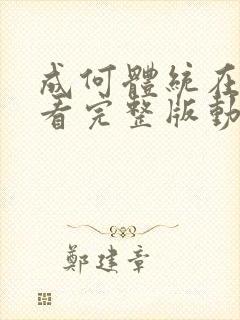 成何體統在
看完整版動
鄭建章